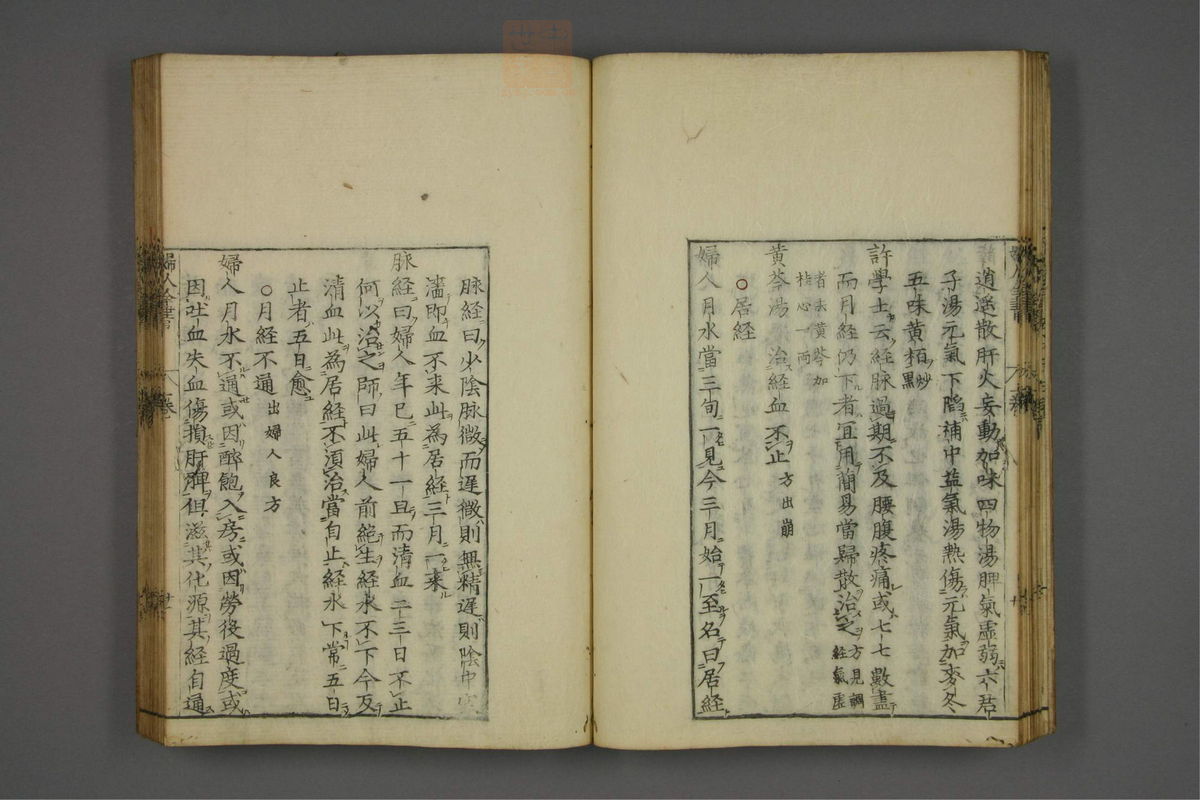 逍遥散肝火妄動加味四物湯脾氣虛弱六君
子湯元氣下陷補中益氣湯熱傷元氣加麥冬
五味黄栢炒黒
許學士云経脉過期不及腰腹疼痛或七七數盡
而月経仍下者冝用簡易當歸散治之方見調経氣虛
者去黄芩加桂心一両
黄芩湯 治経血不止 方出崩
○居経
婦人月水當三旬一見今三月始一至名曰居経
脉経曰少陰脉微而遅微則無精遅則陰中
瀋即血不来此為居経三月一来
脈経曰婦人年已五十一旦而清血二三日不止
何以治之師曰此婦人前絶生経水不下今反
清血此為居経不須治當自止経水下常五日
止者五日愈
○月経不通 出婦人良方
婦人月水不通或因醉飽入房或因勞役過度或
因吐血失血傷損肝脾但滋其化源其経自通